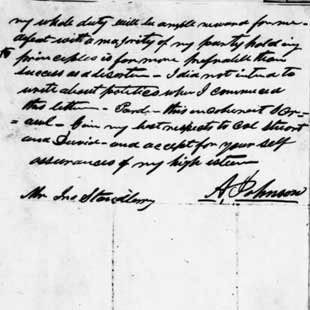 my whole duty will be ample reward for me. A
defeat with a majority of my party holding
to principles is far more preferable than
success as a disorten - I did not intend to
write about politics when I commenced
this letter - Pardon this incoherent scr-
-awl - Give my best respects to Col
and and accept for your self
assurances of my high esteem
A, Johnson
Mr